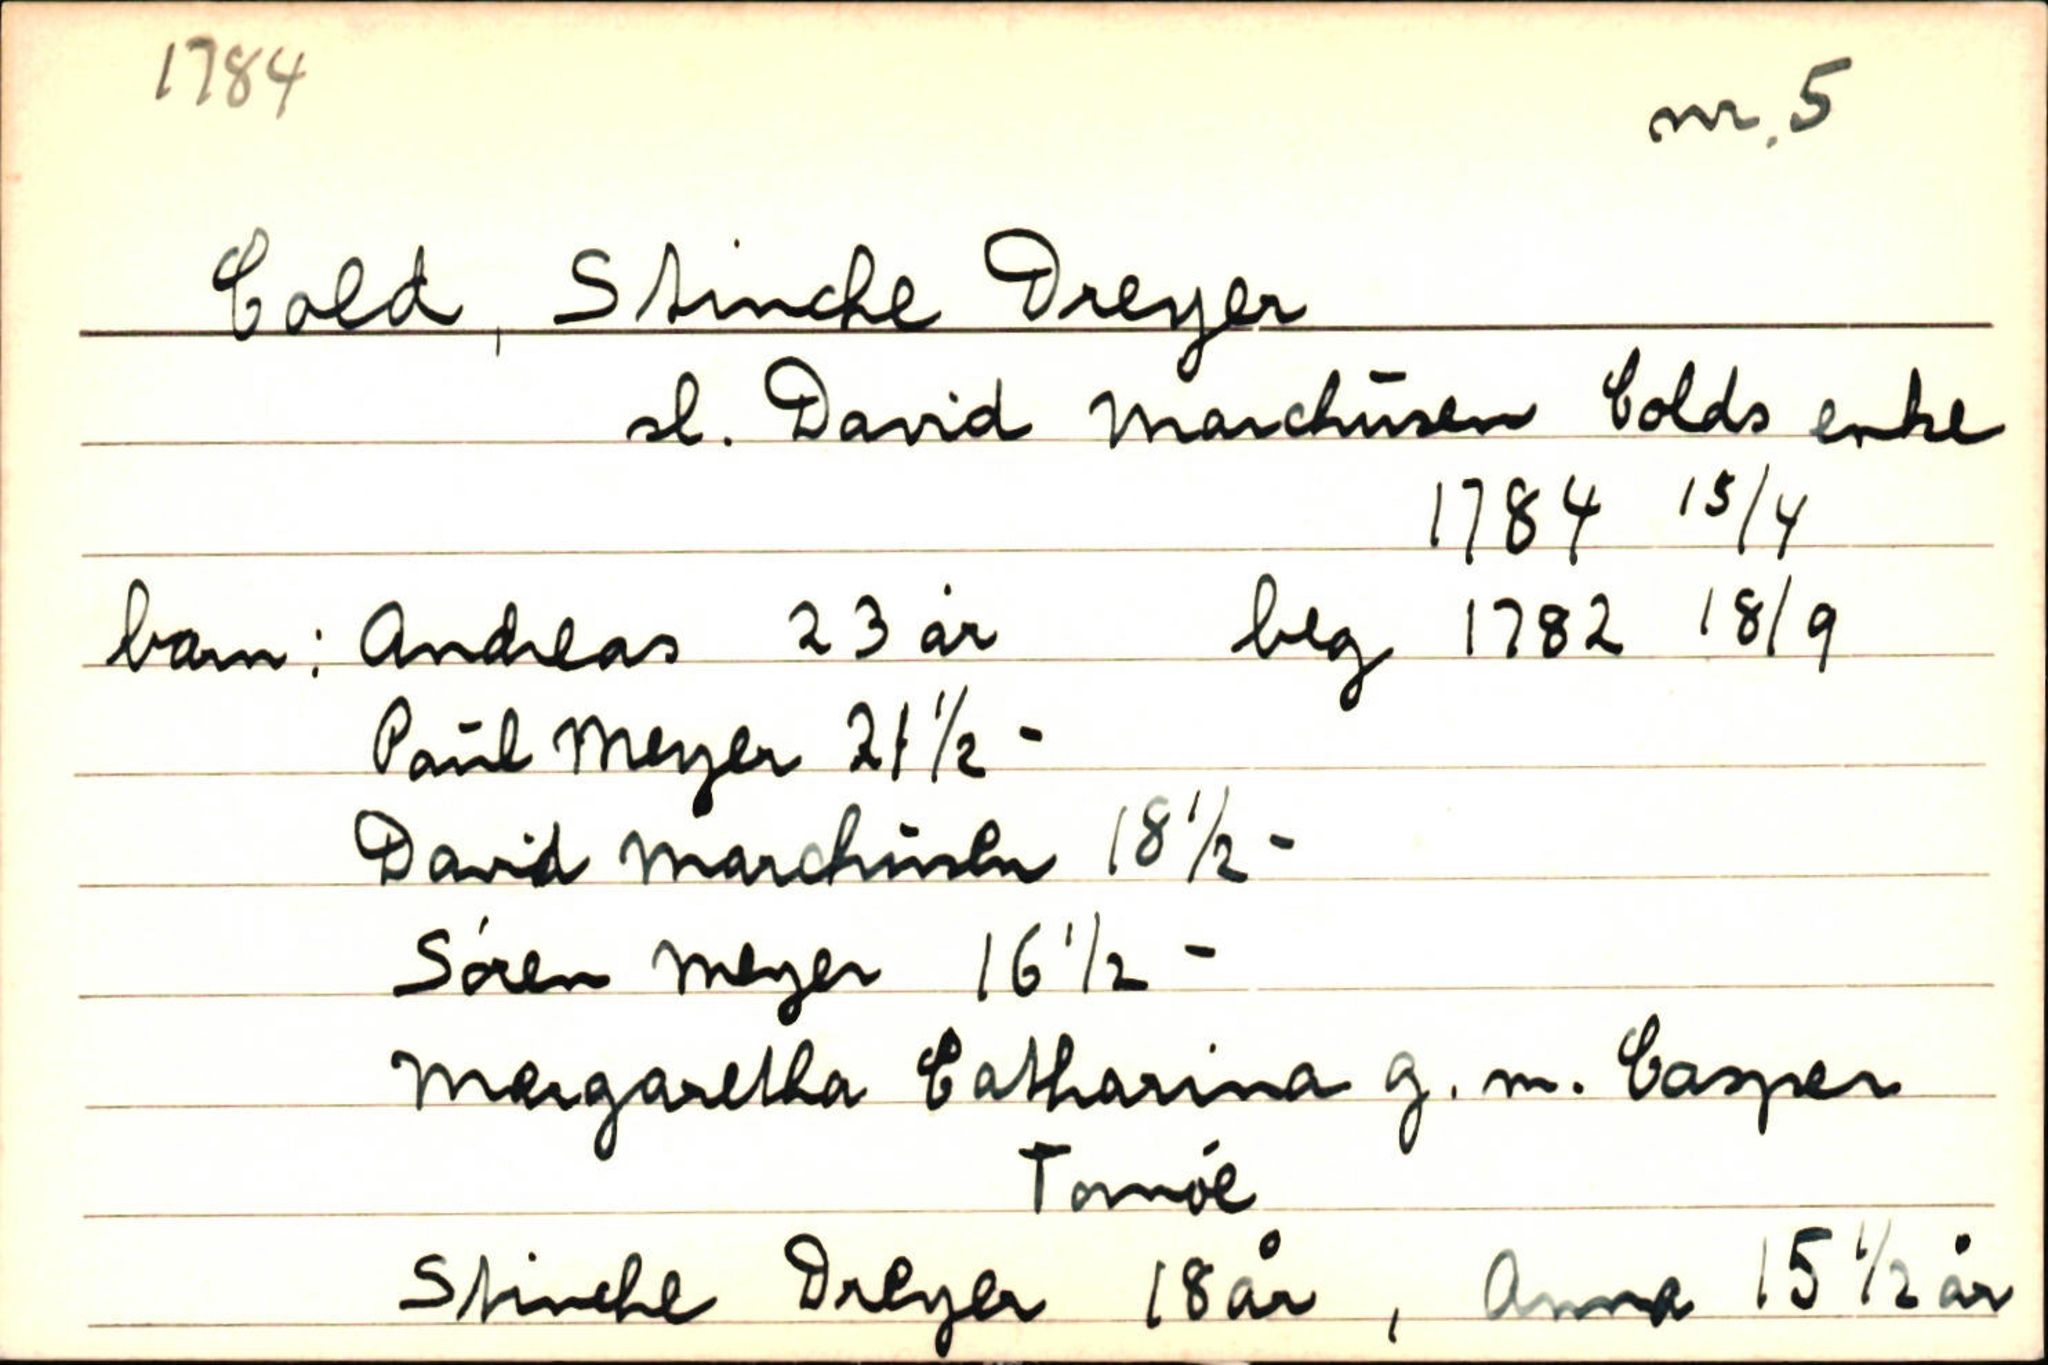 1784 nr. 5
Cold, Stinche Dreyer
sl. David Marchusen Colds enke
1784 15/4
barn: Andreas 23 år beg 1782 18/9
Paul Meyer 21 1/2 -
David Marchusen 18 1/2 -
Sören Meyer 16 1/2 -
Margaretha Catharina g. m. Casper
Tornöe
Stinche Dreyer 18 år, Anna 15 1/2 år